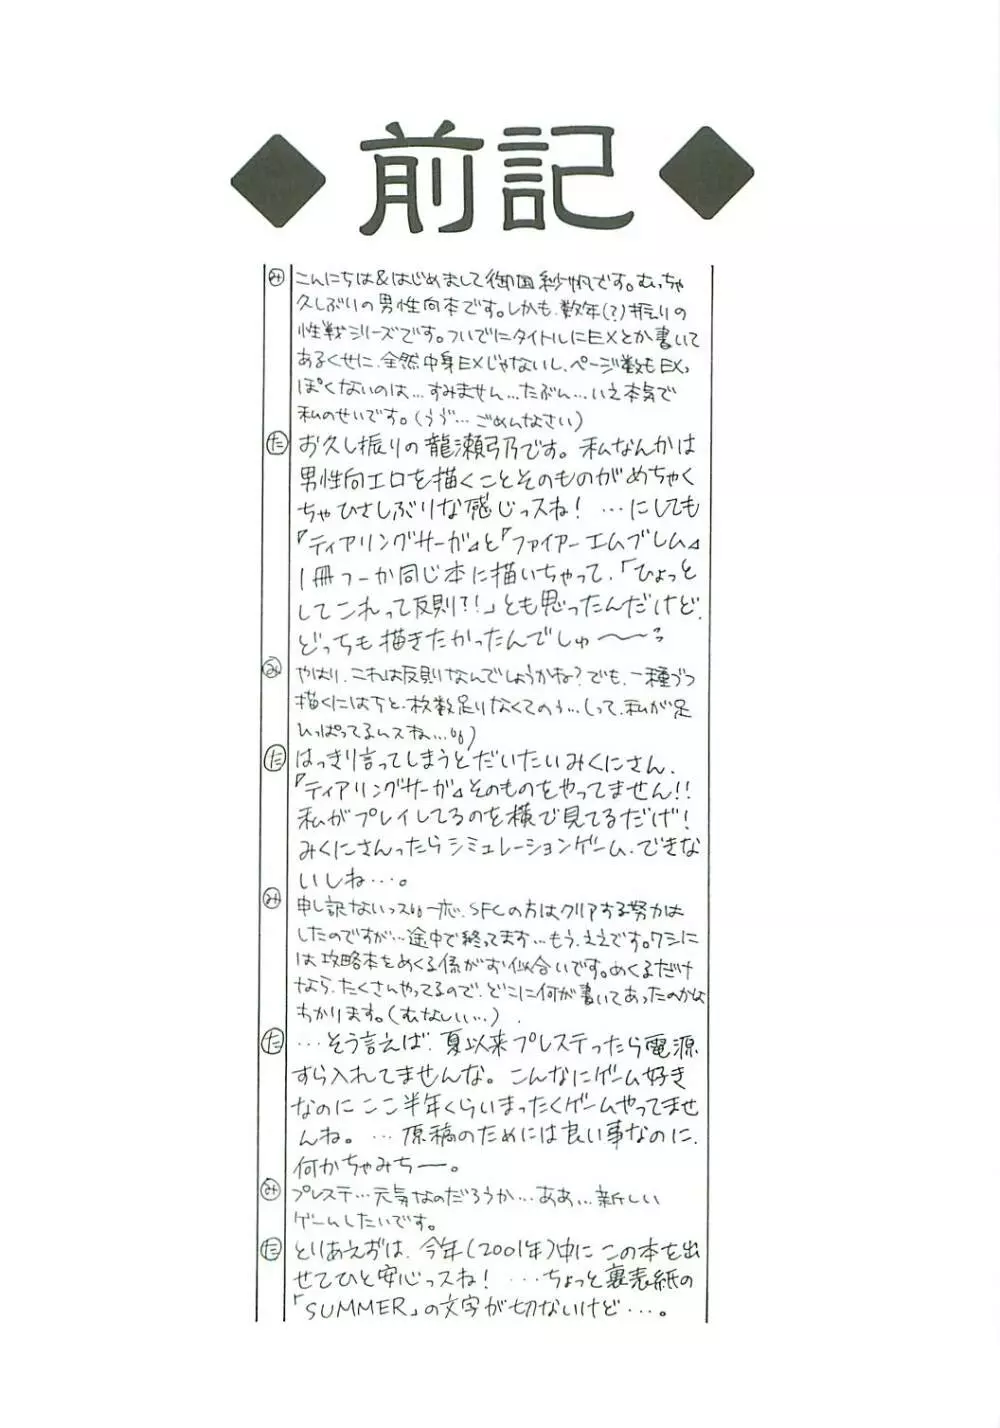 前記
み こんにちは&はじめまして御国紗帆です。むっちゃ
久しぶりの男性向本です。しかも、数年(?)振りの
性戦シリーズです。ついでにタイトルにEXとか書いて
あるくせに、全然中身EXじゃないし、ページ数もEXっ
ぽくないのは…すみません…たぶん…いえ本気で
私のせいです。(うゔ…ごめんなさい)
た お久し振りの龍瀬弓乃です。私なんかは
男性向エロを描くことそのものがめちゃく
ちゃひさしぶりな感じっスね!…にしても
『ティアリングサーガ』と『ファイアーエムブレム』
1冊つーか同じ本に描いちゃって、「ひょっと
してこれって反則?!」とも思ったんだけど、
どっちも描きたかったんでしゅ〜〜っ
み やはり、これは反則なんでしょうかね?でも、一種づつ
描くにはちと、枚数足りなくてのう…(って、私が足
ひっぱってるんスね…)
た はっきり言ってしまうとだいたいみくにさん、
『ティアリングサーガ』そのものをやってません!!
私がプレイしてるのを横で見てるだけ!
みくにさんったらシミュレーションゲーム、できな
いしね…。
み 申し訳ないっス 一応、SFCの方はクリアする努力は
したのですが…途中で終ってます…もう、ええです。ワシに
は攻略本をめくる係がお似合いです。めくるだけ
なら、たくさんやってるので、どこに何が書いてあったのかは
わかります。(むなしい…)
た …そう言えば、夏以来プレステったら電源
すら入れてませんな。こんなにゲーム好き
なのにここ半年くらいまったくゲームやってませ
んね。…原稿のためには良い事なのに、
何かちゃみちー。
み プレステ…元気なのだろうか…ああ…新しい
ゲームしたいです。
た とりあえずは、今年(2001年)中にこの本を出
せてひと安心っスね!…ちょっと裏表紙の
「SUMMER」の文字が切ないけど…。